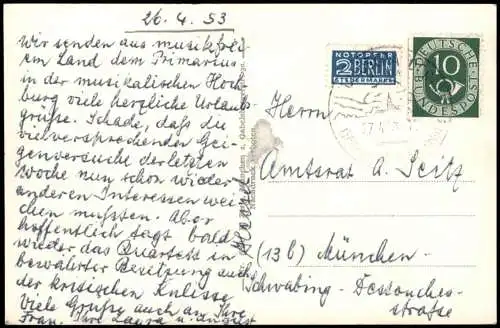 26.4.53
Wir senden aus musikfrei-
em Land dem Primarius
in der musikalischen Hoch
burg viele herzliche Urlaubs
grüsse. Schade, daß die
vielversprechenden Gei-
genversuche der letzten
Woche nun schon wieder
anderen Interessen wei
chen mußten. Aber
hoffentlich tagt bald
wieder das Quartett in
bewährter Besetzung auch
der kritischen Kulisse.
Viele Grüsse auch an Ihre
Frau. Ihre Laura u. August
NOTOPFER
2 BERLIN
STEUERMARKE
DEUTSCHE
BUNDESPOST
10
Herrn
Amtsrat A. Seitz
(13b) München-
Schwabing-
strasse